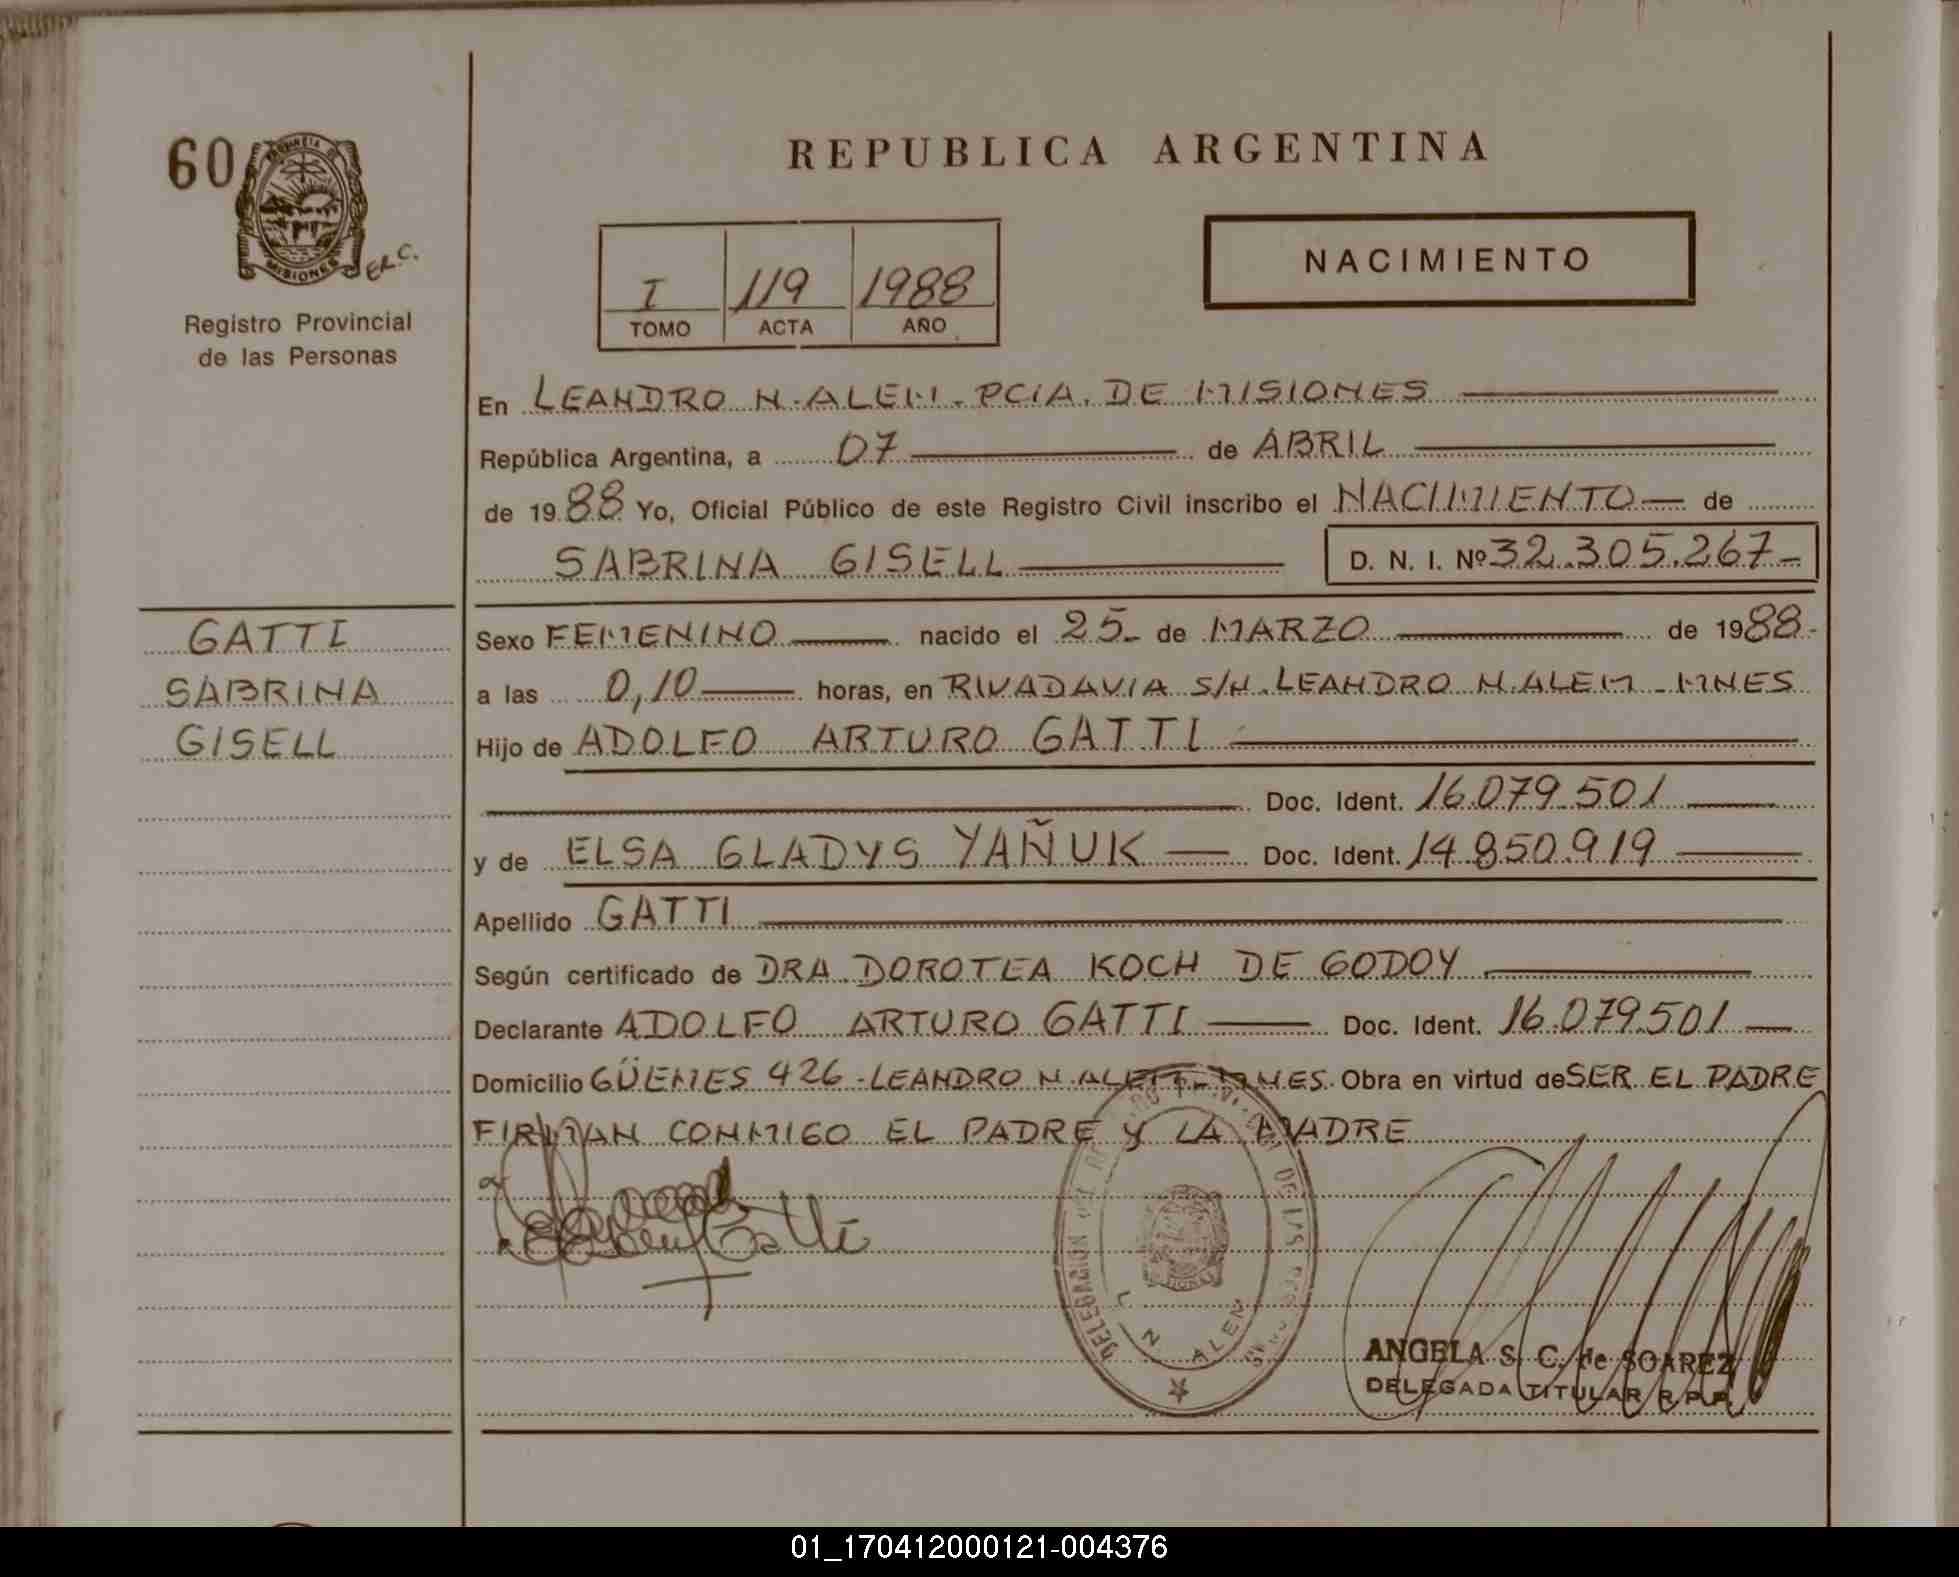 60
PROVINCIA DE
MISIONES
Registro Provincial
de las Personas
REPUBLICA ARGENTINA
I 119 1988
TOMO ACTA AÑO
NACIMIENTO
En LEANDRO N. ALEM - PCIA. DE MISIONES
República Argentina, a 07 de ABRIL
de 1988 Yo, Oficial Público de este Registro Civil inscribo el NACIMIENTO de
SABRINA GISELL D. N. I. Nº 32.305.267-
GATTI
SABRINA
GISELL
Sexo FEMENINO nacido el 25- de MARZO de 1988-
a las 0,10 horas, en RIVADAVIA S/N. LEANDRO N. ALEM - MNES
Hijo de ADOLFO ARTURO GATTI
Doc. Ident. 16.079.501
y de ELSA GLADYS YAÑUK Doc. Ident. 14.850.919
Apellido GATTI
Según certificado de DRA. DOROTEA KOCH DE GODOY
Declarante ADOLFO ARTURO GATTI Doc. Ident. 16.079.501
Domicilio GÜEMES 426 - LEANDRO N. ALEM - MNES. Obra en virtud de SER EL PADRE
FIRMAN CONMIGO EL PADRE Y LA MADRE
Gatti
DELEGACION DE LAS
L N ALEM
ANGELA S. C. de SOAREZ
DELEGADA TITULAR R.P.P.
01_170412000121-004376